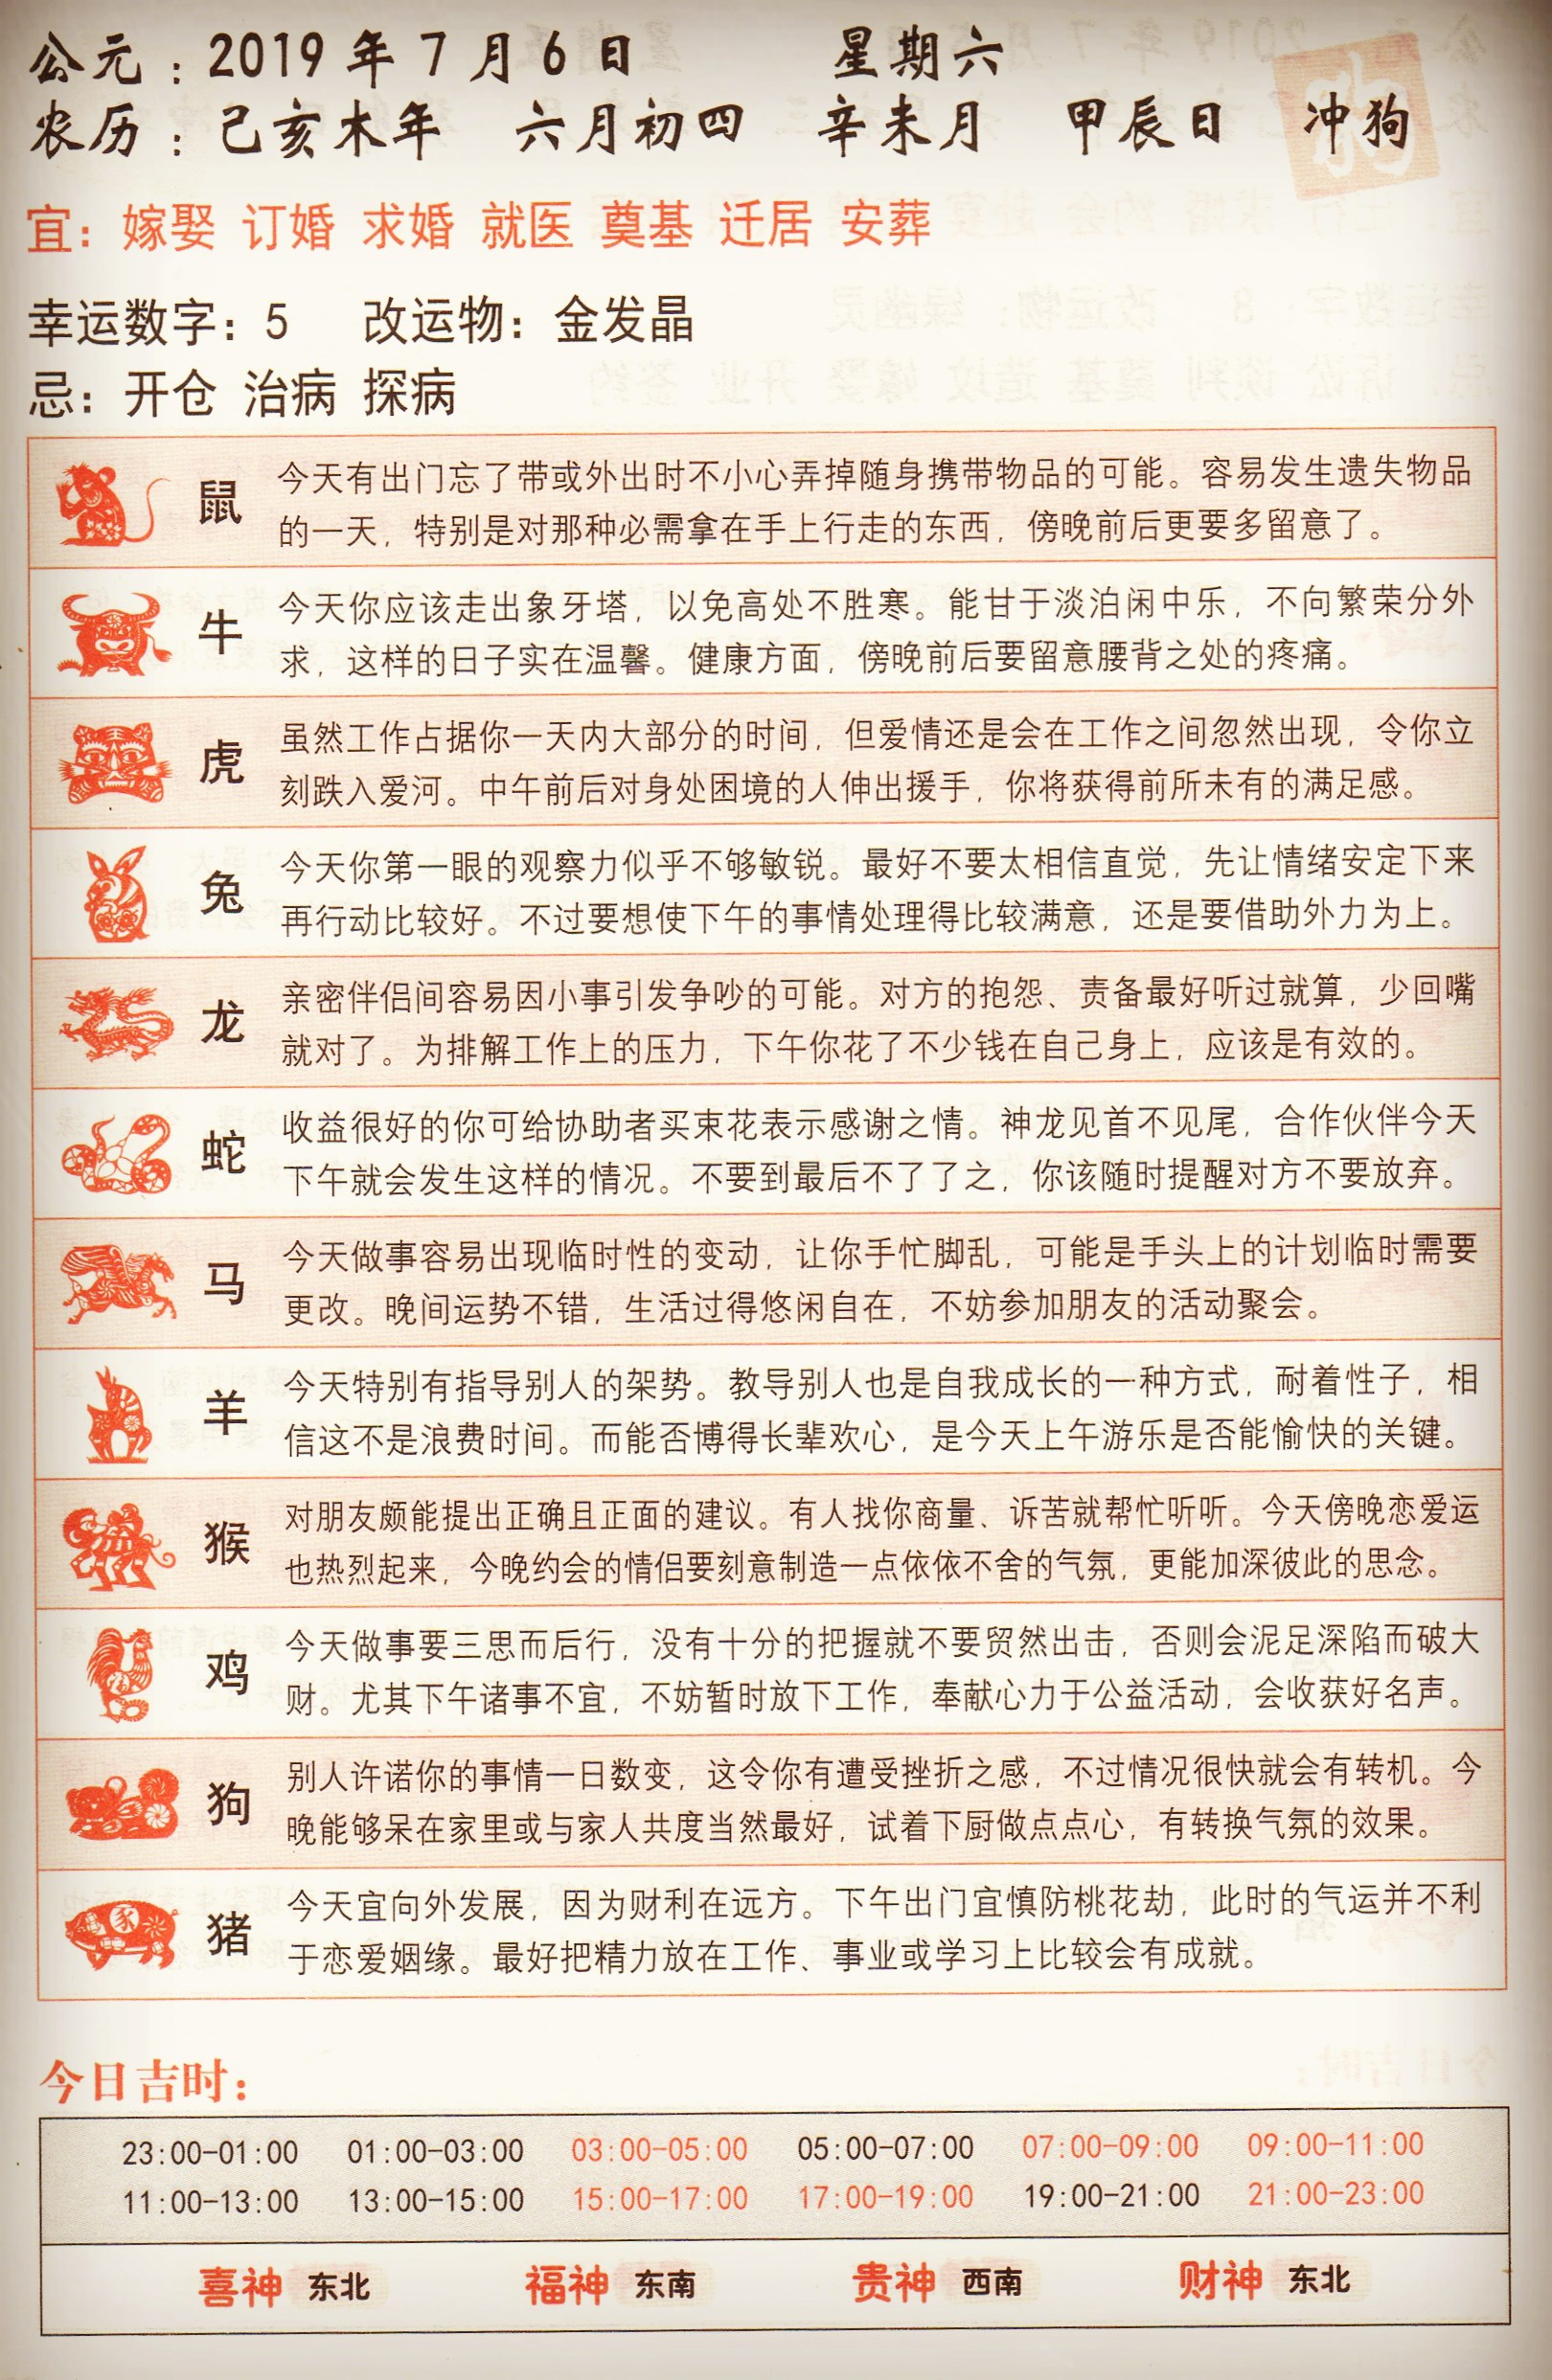 公元：2019年7月6日 星期六
狗
农历：己亥木年 六月初四 辛未月 甲辰日 冲狗
宜：嫁娶 订婚 求婚 就医 奠基 迁居 安葬
幸运数字：5 改运物：金发晶
忌：开仓 治病 探病
鼠
今天有出门忘了带或外出时不小心弄掉随身携带物品的可能。容易发生遗失物品
的一天，特别是对那种必需拿在手上行走的东西，傍晚前后更要多留意了。
牛
今天你应该走出象牙塔，以免高处不胜寒。能甘于淡泊闲中乐，不向繁荣分外
求，这样的日子实在温馨。健康方面，傍晚前后要留意腰背之处的疼痛。
虎
虽然工作占据你一天内大部分的时间，但爱情还是会在工作之间忽然出现，令你立
刻跌入爱河。中午前后对身处困境的人伸出援手，你将获得前所未有的满足感。
兔
今天你第一眼的观察力似乎不够敏锐。最好不要太相信直觉，先让情绪安定下来
再行动比较好。不过要想使下午的事情处理得比较满意，还是要借助外力为上。
龙
亲密伴侣间容易因小事引发争吵的可能。对方的抱怨、责备最好听过就算，少回嘴
就对了。为排解工作上的压力，下午你花了不少钱在自己身上，应该是有效的。
蛇
收益很好的你可给协助者买束花表示感谢之情。神龙见首不见尾，合作伙伴今天
下午就会发生这样的情况。不要到最后不了了之，你该随时提醒对方不要放弃。
马
今天做事容易出现临时性的变动，让你手忙脚乱，可能是手头上的计划临时需要
更改。晚间运势不错，生活过得悠闲自在，不妨参加朋友的活动聚会。
羊
今天特别有指导别人的架势。教导别人也是自我成长的一种方式，耐着性子，相
信这不是浪费时间。而能否博得长辈欢心，是今天上午游乐是否能愉快的关键。
猴
对朋友颇能提出正确且正面的建议。有人找你商量、诉苦就帮忙听听。今天傍晚恋爱运
也热烈起来，今晚约会的情侣要刻意制造一点依依不舍的气氛，更能加深彼此的思念。
鸡
今天做事要三思而后行，没有十分的把握就不要贸然出击，否则会泥足深陷而破大
财。尤其下午诸事不宜，不妨暂时放下工作，奉献心力于公益活动，会收获好名声。
狗
别人许诺你的事情一日数变，这令你有遭受挫折之感，不过情况很快就会有转机。今
晚能够呆在家里或与家人共度当然最好，试着下厨做点点心，有转换气氛的效果。
猪
今天宜向外发展，因为财利在远方。下午出门宜慎防桃花劫，此时的气运并不利
于恋爱姻缘。最好把精力放在工作、事业或学习上比较会有成就。
今日吉时：
23:00-01:00 01:00-03:00 03:00-05:00 05:00-07:00 07:00-09:00 09:00-11:00
11:00-13:00 13:00-15:00 15:00-17:00 17:00-19:00 19:00-21:00 21:00-23:00
喜神 东北 福神 东南 贵神 西南 财神 东北